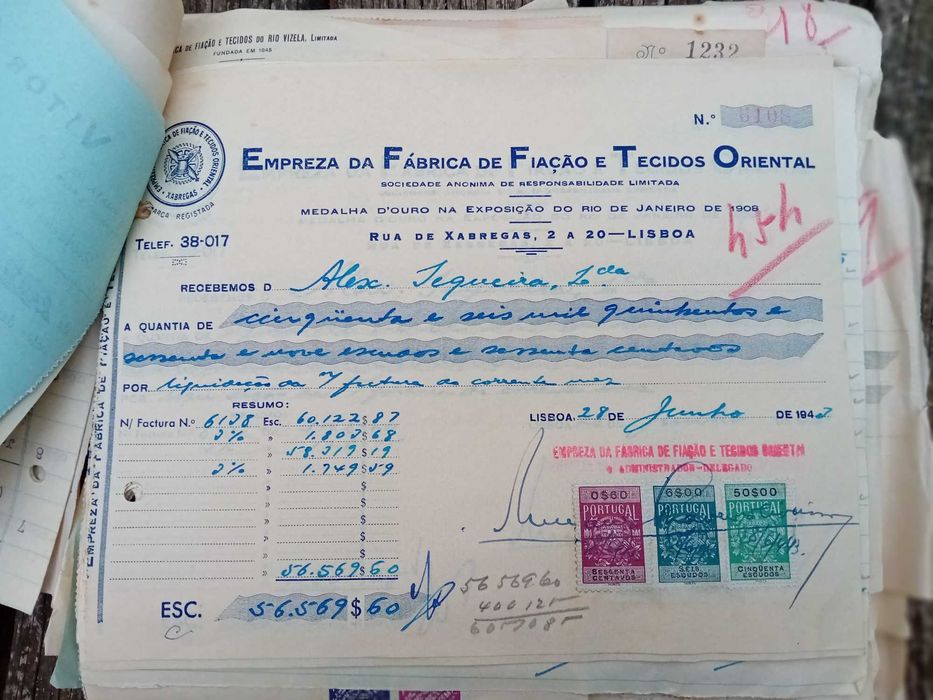 CA DE FIAÇÃO E TECIDOS DO RIO VIZELA, LIMITADA
FUNDADA EM 1845
Nº 1232
18
N.º 6108
EMPREZA DA FÁBRICA DE FIAÇÃO E TECIDOS ORIENTAL
SOCIEDADE ANONIMA DE RESPONSABILIDADE LIMITADA
MEDALHA D'OURO NA EXPOSIÇÃO DO RIO DE JANEIRO DE 1908
RUA DE XABREGAS, 2 A 20—LISBOA
XABREGAS
MARCA REGISTADA
TELEF. 38-017
RECEBEMOS D Alex. Sequeira, Lda
A QUANTIA DE cinqüenta e seis mil quinhentos e
sessenta e nove escudos e sessenta centavos
POR liquidação da n/ factura do corrente mez
RESUMO:
N/ Factura N.º 6138 Esc. 60.122$87
3% » 1.803$68
» 58.319$19
3% » 1.749$59
» $
» $
» $
» $
» $
» 56.569$60
ESC. 56.569$60
LISBOA, 28 DE Junho DE 1943
EMPREZA DA FABRICA DE FIAÇÃO E TECIDOS ORIENTAL
O ADMINISTRADOR-DELEGADO
0$60 PORTUGAL SESSENTA CENTAVOS
6$00 PORTUGAL SEIS ESCUDOS
50$00 PORTUGAL CINQÜENTA ESCUDOS
56 569 60